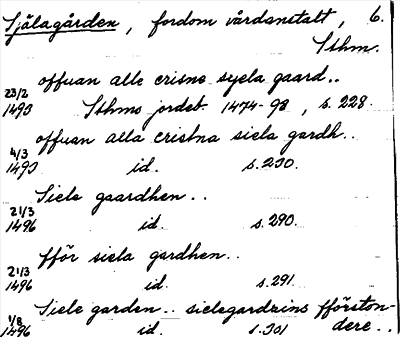 Själagården, fordom vårdanstalt, 6.
Sthm.
offuan alle crisne syela gaard..
23/2
1493 Sthms jordeb. 1474-98, s. 228.
offuan alla cristna siela gardh..
4/3
1493 id. s. 230.
Siele gaardhen..
21/3
1496 id. s. 290.
fför siela gardhen..
21/3
1496 id. s. 291.
Siele garden.. sielegardzins fförston-
1/8
1496 id. s. 301 dere..